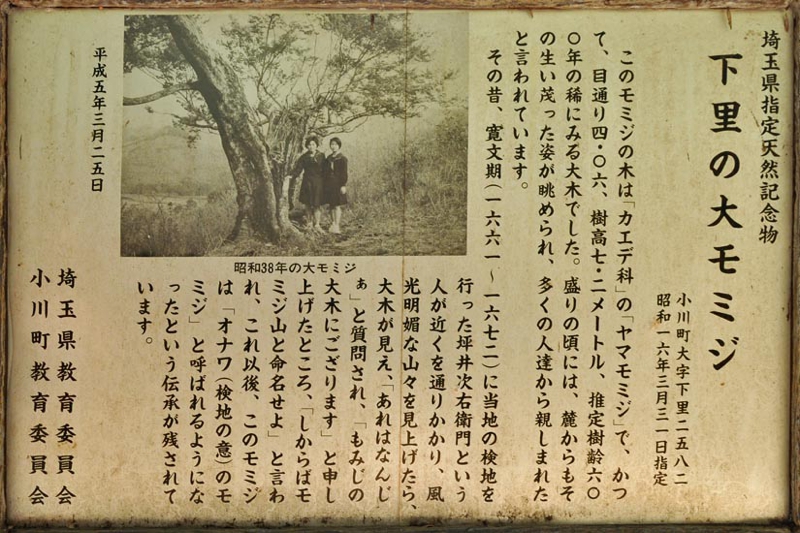 埼玉県指定天然記念物
下里の大モミジ
小川町大字下里二五八二
昭和一六年三月三一日指定
このモミジの木は「カエデ科」の「ヤマモミジ」で、かつ
て、目通り四・〇六、樹高七・二メートル、推定樹齢六〇
〇年の稀にみる大木でした。盛りの頃には、麓からもそ
の生い茂った姿が眺められ、多くの人達から親しまれた
と言われています。
その昔、寛文期(一六六一～一六七二)に当地の検地を
行った坪井次右衛門という
人が近くを通りかかり、風
光明媚な山々を見上げたら、
大木が見え、「あれはなんじ
ぁ」と質問され、「もみじの
大木にござります」と申し
上げたところ、「しからばモ
ミジ山と命名せよ」と言わ
れ、これ以後、このモミジ
は「オナワ(検地の意)のモ
ミジ」と呼ばれるようにな
ったという伝承が残されて
います。
昭和38年の大モミジ
平成五年三月二五日
埼玉県教育委員会
小川町教育委員会